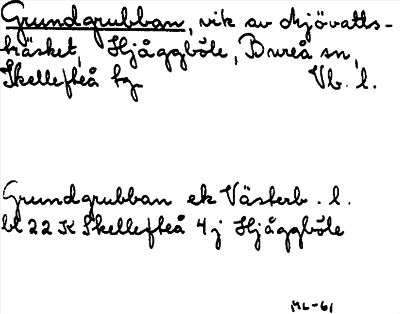 Grundgrubban, vik av Mjövatts-
käsket, Hjåggböle, Bureå sn,
Skellefteå tg Vb. l.
Grundgrubban ek Västerb. l.
bl 22 K Skellefteå 4 j Hjåggböle
ML-61